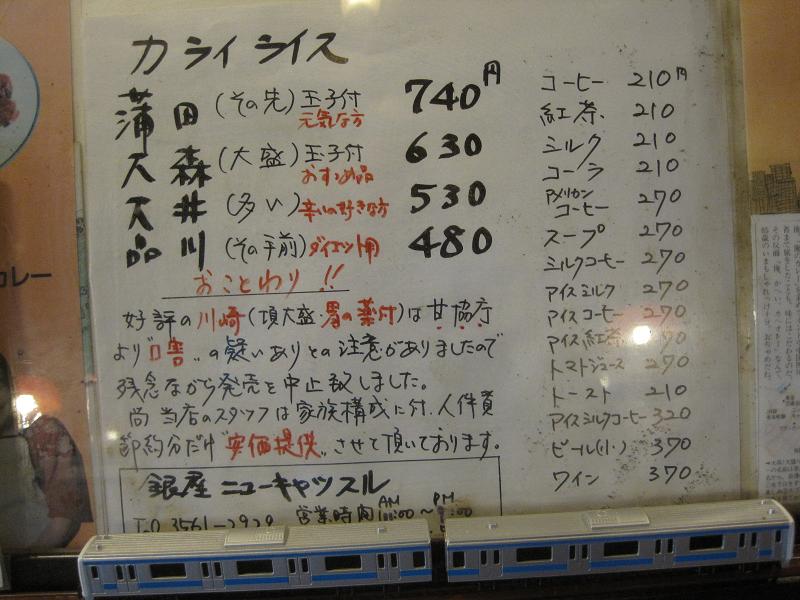 カライライス
蒲田 (その先) 玉子付 740円
元気な方
大森 (大盛) 玉子付 630
おすすめ品
大井 (多い) 辛いの好きな方 530
品川 (その手前) ダイエット用 480
おことわり!!
好評の川崎(頂大盛・胃の薬付)は甘協庁
より"口害"の疑いありとの注意がありましたので
残念ながら発売を中止致しました。
尚 当店のスタッフは家族構成に付、人件費
節約分だけ"安価提供"させて頂いております。
銀座 ニューキャッスル
Tel 3561-2929 営業時間 AM 11:00〜PM
コーヒー 210円
紅茶 210
ミルク 210
コーラ 210
アメリカン
コーヒー 270
スープ 270
ミルクコーヒー 270
アイスミルク 270
アイスコーヒー 270
アイス紅茶 270
トマトジュース 270
トースト 210
アイスミルクコーヒー 320
ビール(小) 370
ワイン 370
カレー